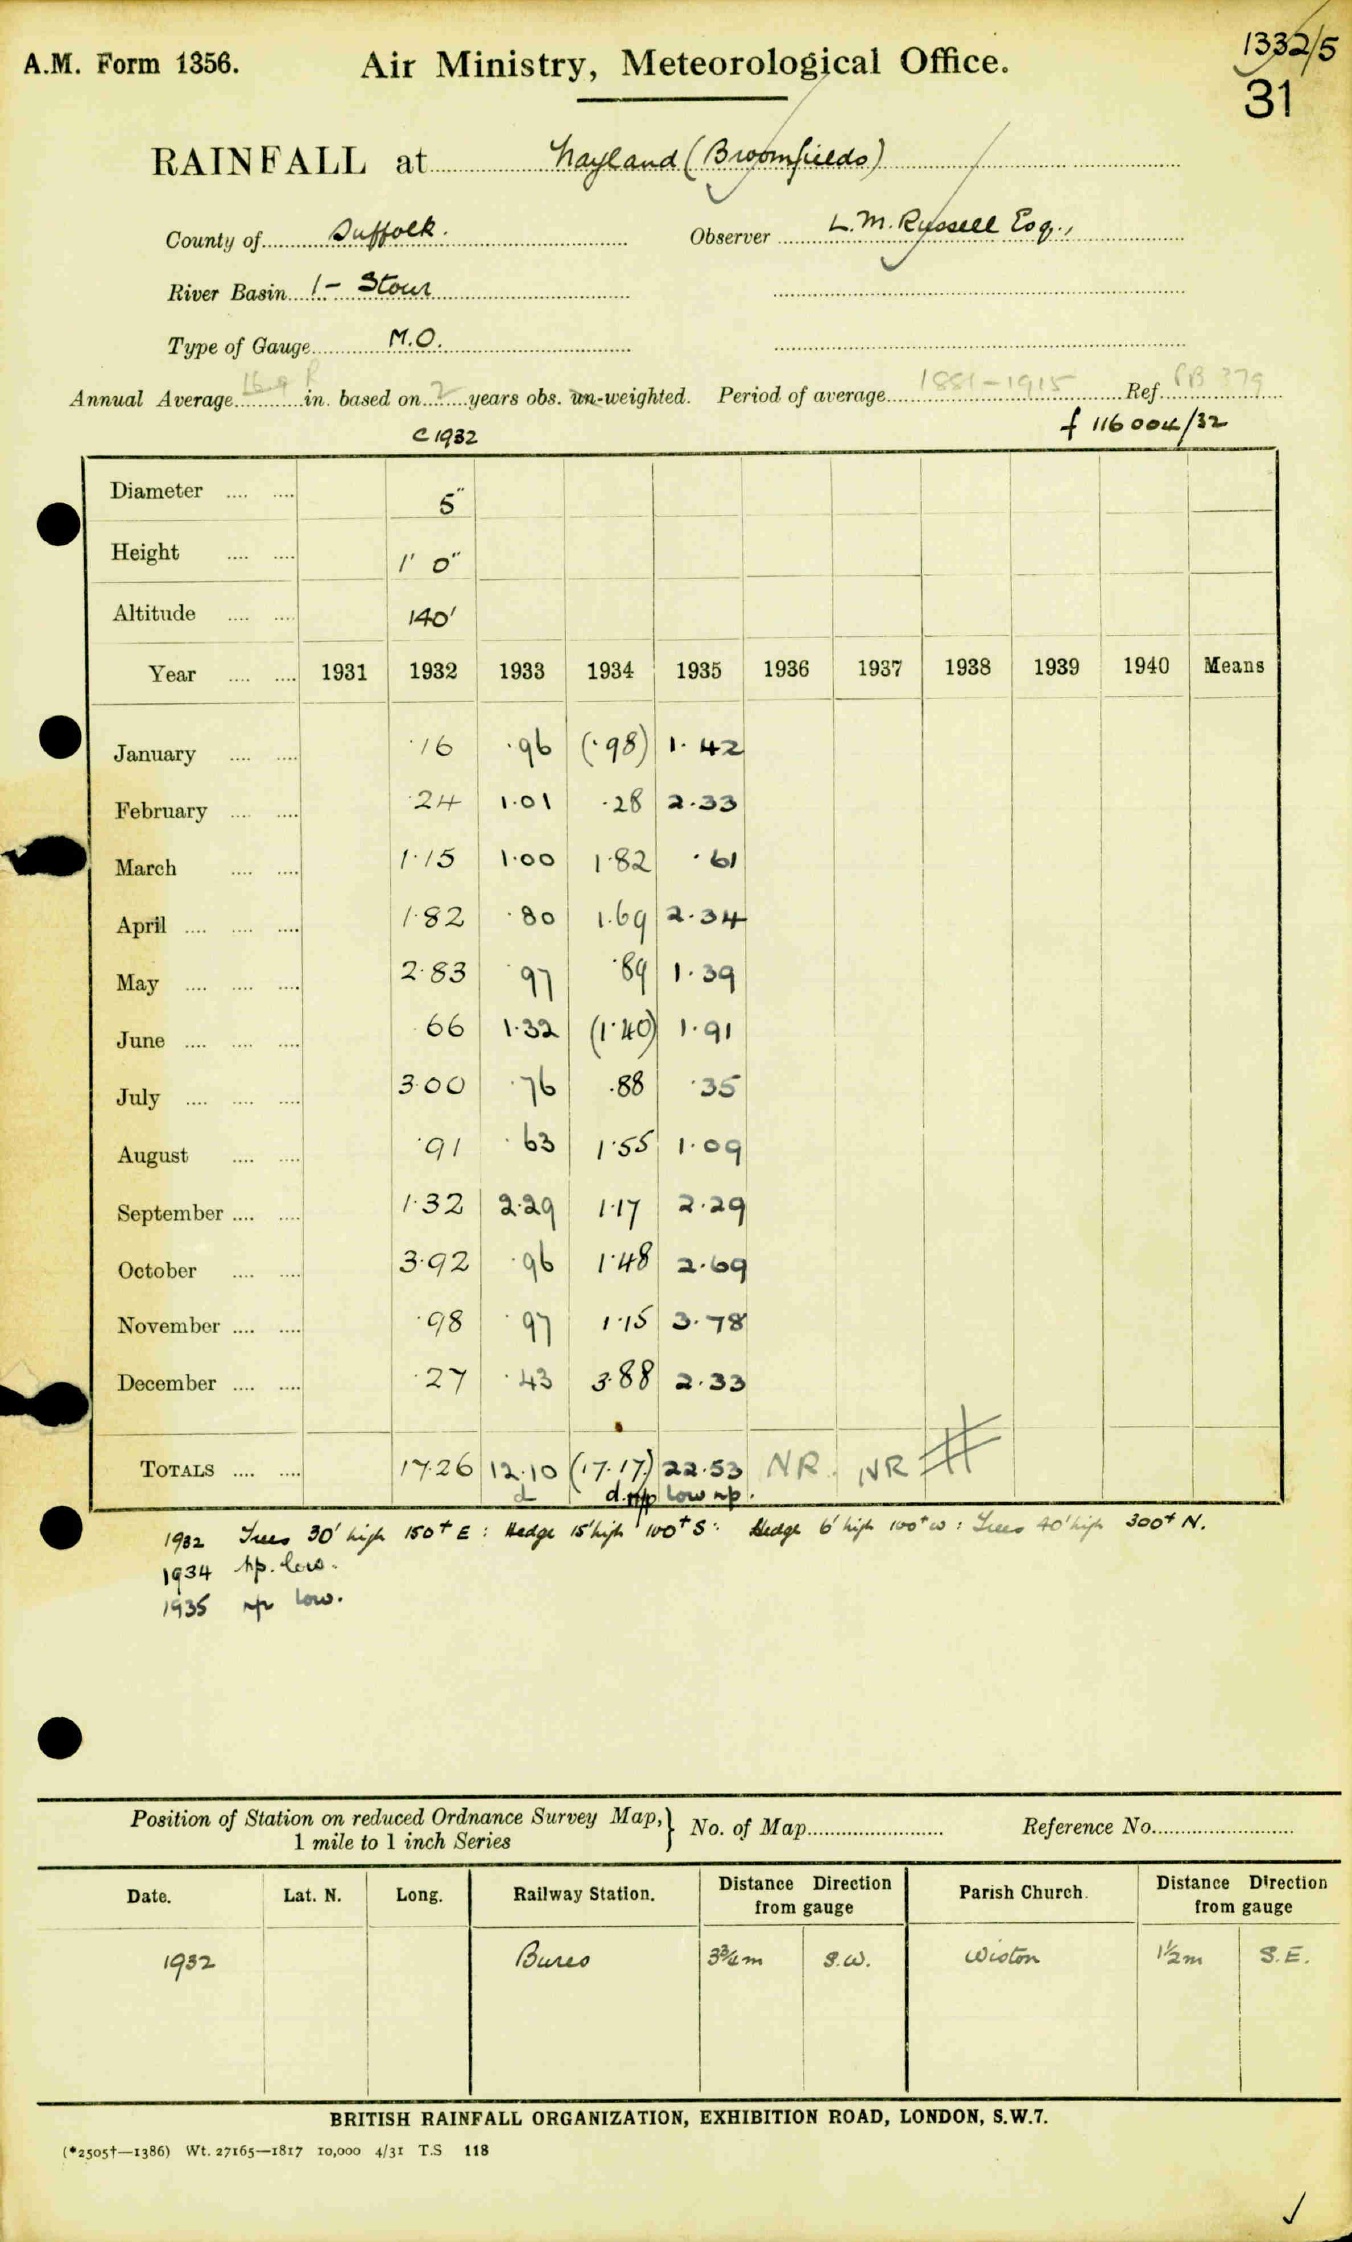 A.M. Form 1356. Air Ministry, Meteorological Office. 1332/5
31
RAINFALL at Nayland (Broomfields)
County of Suffolk. Observer L.M. Russell Esq.,
River Basin 1- Stour
Type of Gauge M.O.
Annual Average in. based on 2 years obs. un-weighted. Period of average 1881-1915 Ref. RB 379
C 1932 f 116004/32
Diameter .... .... 5"
Height .... .... 1' 0"
Altitude .... .... 140'
Year .... .... 1931 1932 1933 1934 1935 1936 1937 1938 1939 1940 Means
January .... .... ·16 ·96 (·98) 1·42
February .... .... ·24 1·01 ·28 2·33
March .... .... 1·15 1·00 1·82 ·61
April .... .... .... 1·82 ·80 1·69 2·34
May .... .... .... 2·83 ·97 ·89 1·39
June .... .... .... ·66 1·32 (1·40) 1·91
July .... .... .... 3·00 ·76 ·88 ·35
August .... .... ·91 ·63 1·55 1·09
September .... .... 1·32 2·29 1·17 2·29
October .... .... 3·92 ·96 1·48 2·69
November .... .... ·98 ·97 1·15 3·78
December .... .... ·27 ·43 3·88 2·33
TOTALS .... .... 17·26 12·10 (17·17) 22·53 NR. NR
d d. np low np.
1932 Trees 30' high 150+ E : Hedge 15' high 100+ S : Hedge 6' high 100+ W : Trees 40' high 300+ N.
1934 np. low.
1935 np low.
Position of Station on reduced Ordnance Survey Map,} No. of Map Reference No.
1 mile to 1 inch Series
Date. Lat. N. Long. Railway Station. Distance Direction from gauge Parish Church. Distance Direction from gauge
1932 Bures 3¾m S.W. Wiston 1½m S.E.
BRITISH RAINFALL ORGANIZATION, EXHIBITION ROAD, LONDON, S.W.7.
(*2505†—1386) Wt. 27165—1817 10,000 4/31 T.S 118